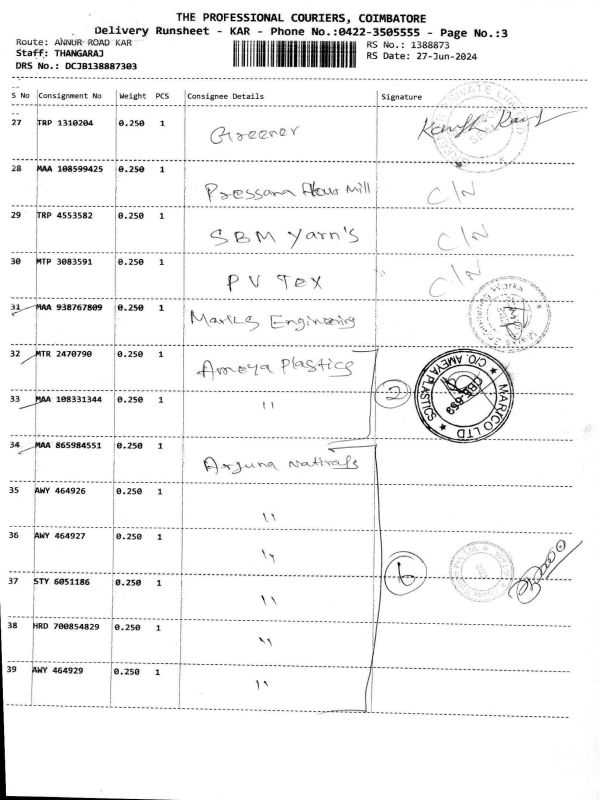 THE PROFESSIONAL COURIERS, COIMBATORE
Delivery Runsheet - KAR - Phone No.:0422-3505555 - Page No.:3
Route: ANNUR ROAD KAR
Staff: THANGARAJ
DRS No.: DCJB138887303
RS No.: 1388873
RS Date: 27-Jun-2024
S No Consignment No Weight PCS Consignee Details Signature
27 TRP 1310204 0.250 1 Greener
28 MAA 108599425 0.250 1 Pressana Flour Mill C/N
29 TRP 4553582 0.250 1 SBM Yarn's C/N
30 MTP 3083591 0.250 1 PV Tex C/N
31 MAA 938767809 0.250 1 Marks Engineering
32 MTR 2470790 0.250 1 Ameya Plastics
33 MAA 108331344 0.250 1 "
2
MARICO LTD
C/O. AMEYA PLASTICS
34 MAA 865984551 0.250 1 Arjuna Natirals
35 AWY 464926 0.250 1 "
36 AWY 464927 0.250 1 "
37 STY 6051186 0.250 1 "
6
38 HRD 700854829 0.250 1 "
39 AWY 464929 0.250 1 "